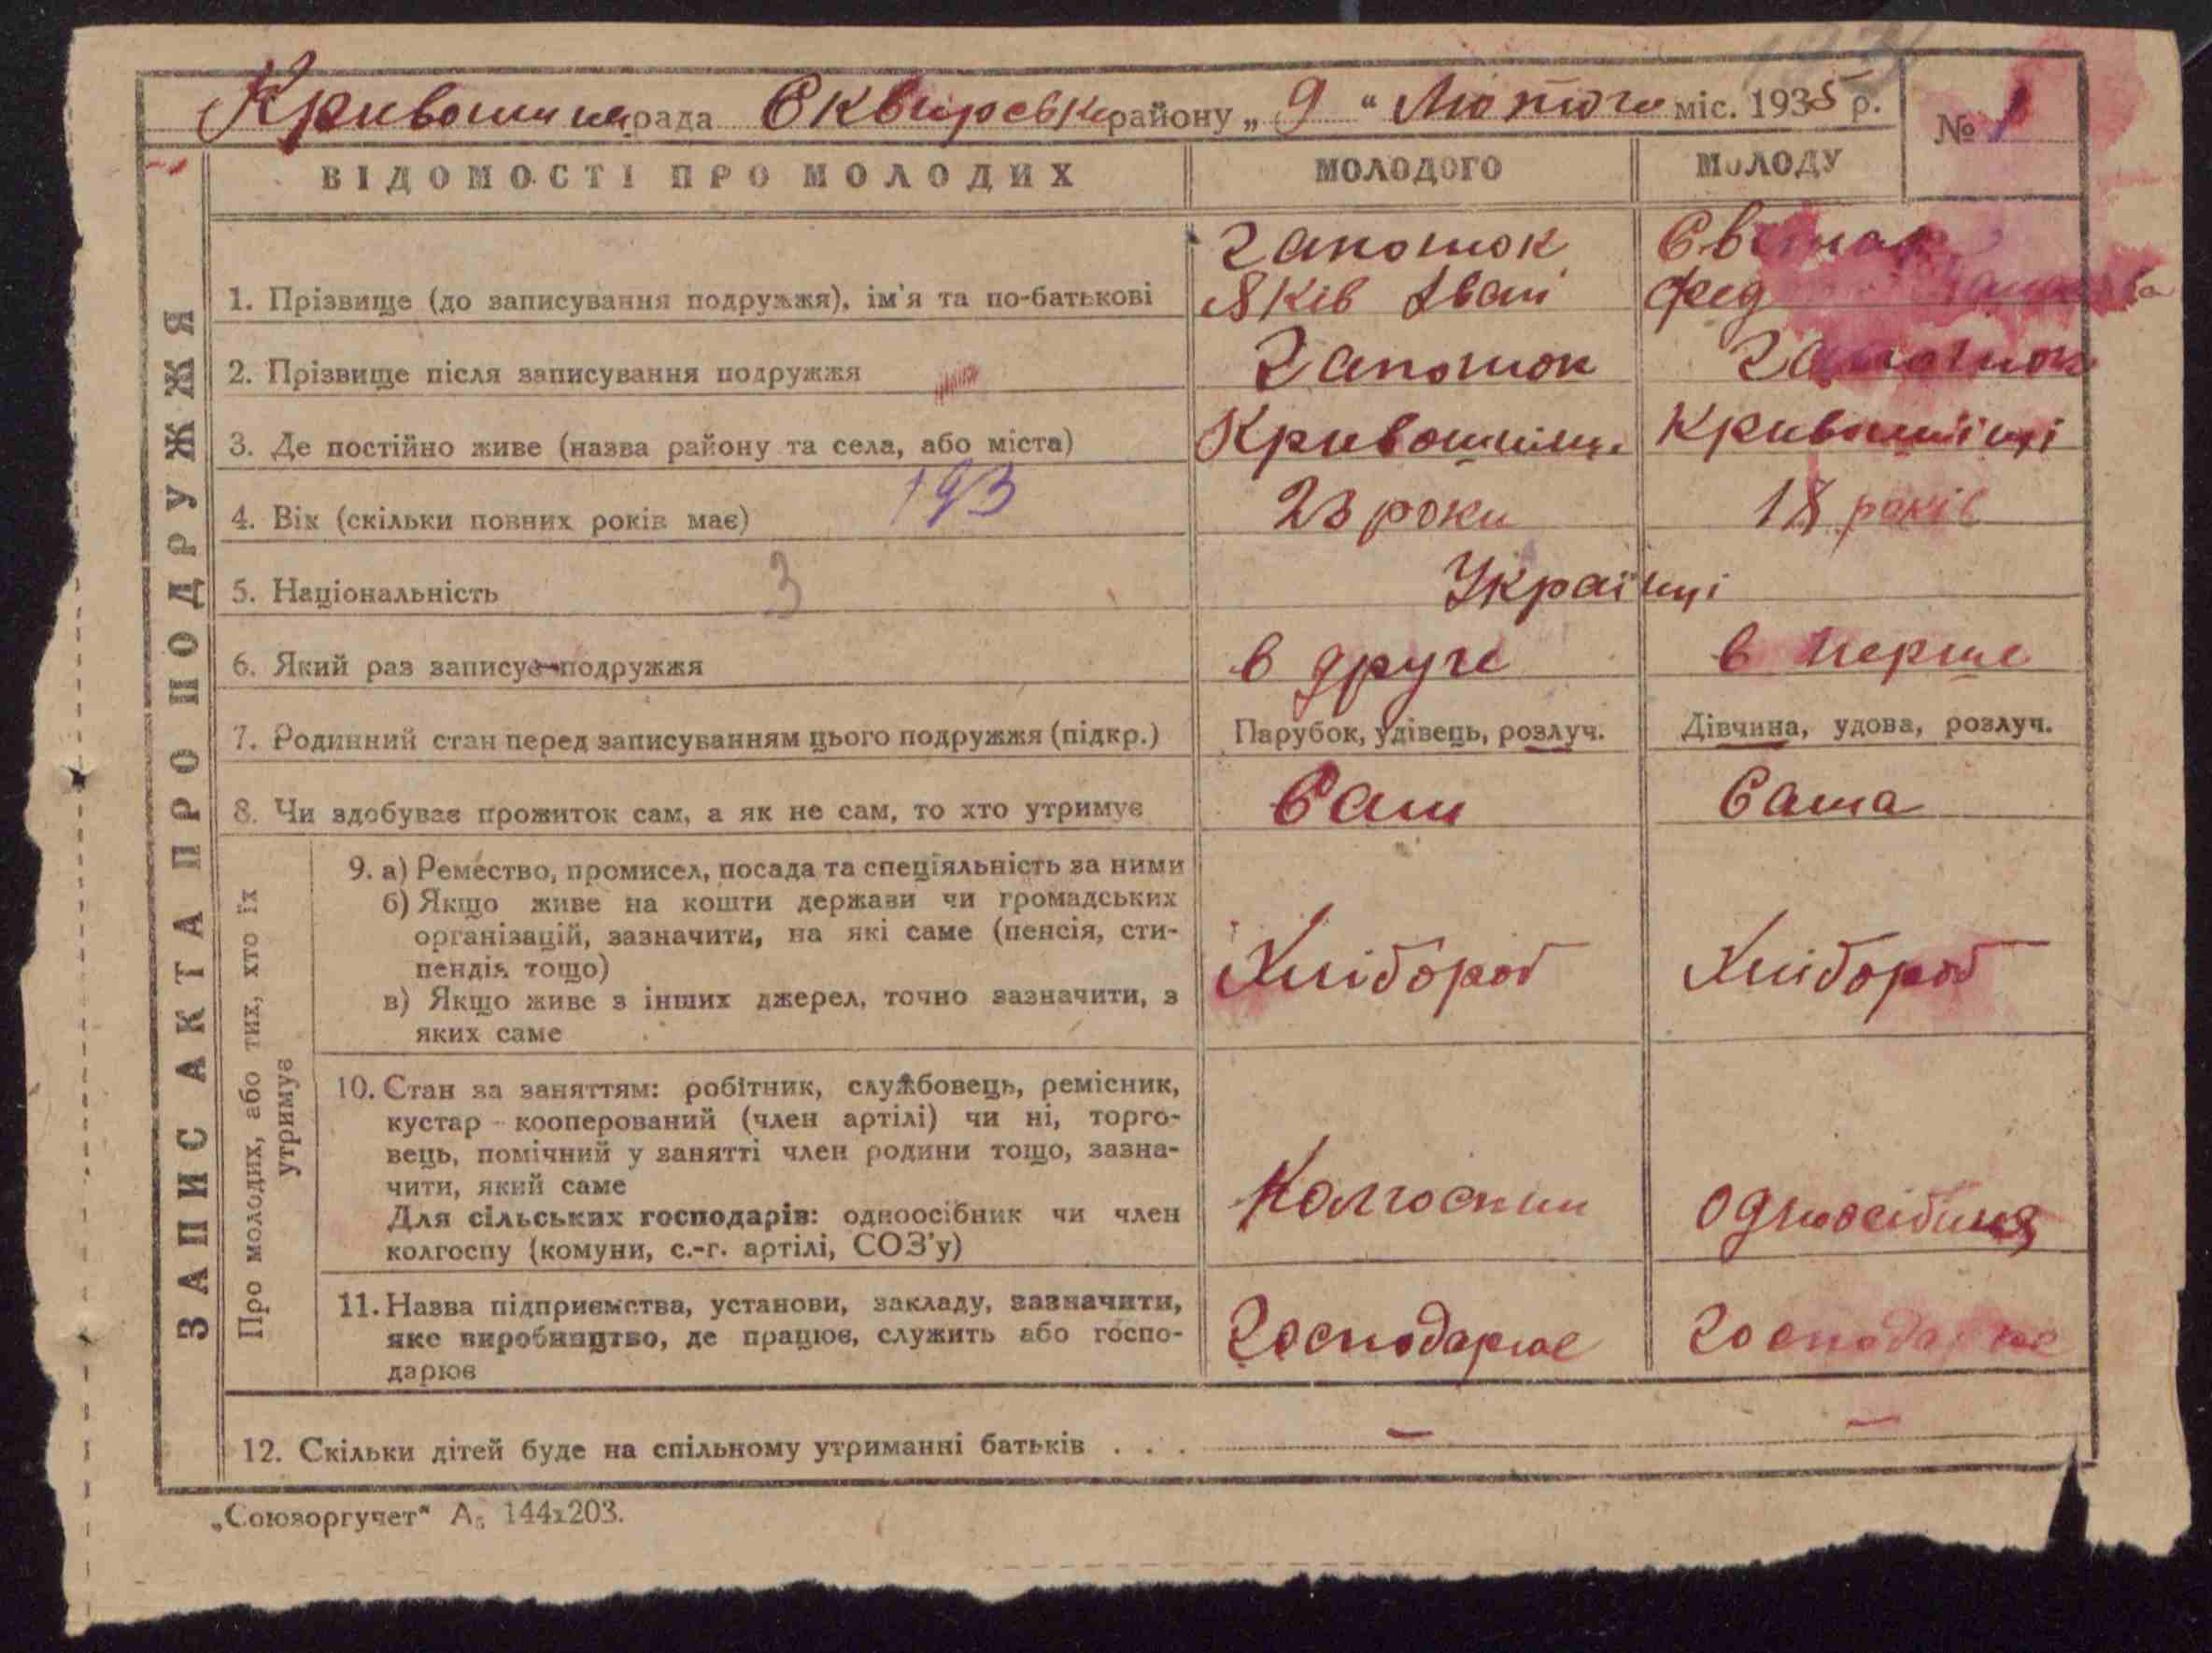 Кривошиин рада Сквирськ району „ 9 “ Лютого міс. 1935 р.
№ 1
ЗАПИС АКТА ПРО ПОДРУЖЖЯ
ВІДОМОСТІ ПРО МОЛОДИХ МОЛОДОГО МОЛОДУ
Гапонюк
1. Прізвище (до записування подружжя), ім'я та по-батькові Яків Іван Фед
2. Прізвище після записування подружжя Гапонюк Гапонюк
3. Де постійно живе (назва району та села, або міста) Кривошиїнці Кривошиїнці
4. Вік (скільки повних років має) 193 23 роки 18 років
5. Національність 3 Українці
6. Який раз записує подружжя в друге в перше
7. Родинний стан перед записуванням цього подружжя (підкр.) Парубок, удівець, розлуч. Дівчина, удова, розлуч.
8. Чи здобуває прожиток сам, а як не сам, то хто утримує Сам Сама
Про молодих, або тих, хто їх
утримує
9. а) Ремество, промисел, посада та спеціяльність за ними
б) Якщо живе на кошти держави чи громадських
організацій, зазначити, на які саме (пенсія, сти-
пендія тощо)
в) Якщо живе з інших джерел, точно зазначити, з
яких саме
Хлібороб Хлібороб
10. Стан за заняттям: робітник, службовець, ремісник,
кустар - кооперований (член артілі) чи ні, торго-
вець, помічний у занятті член родини тощо, зазна-
чити, який саме
Для сільських господарів: одноосібник чи член
колгоспу (комуни, с.-г. артілі, СОЗ'у)
Колгоспник Одноосібниця
11. Назва підприємства, установи, закладу, зазначити,
яке виробництво, де працює, служить або госпо-
дарює
Господарює Господарює
12. Скільки дітей буде на спільному утриманні батьків . . . — —
„Союзоргучет“ А₅ 144х203.